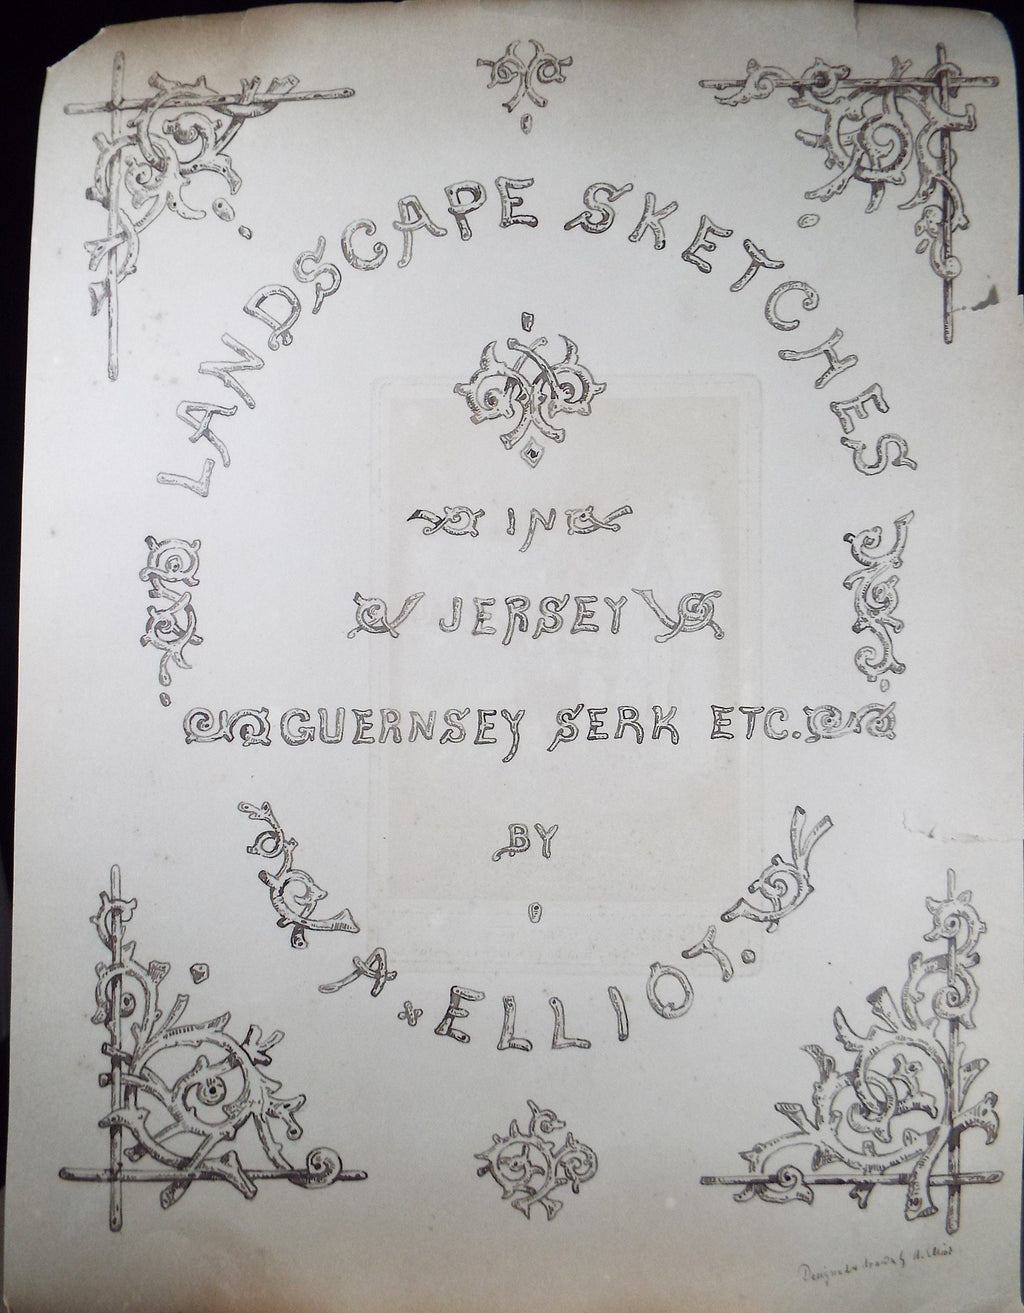 LANDSCAPE SKETCHES
IN
JERSEY
GUERNSEY SERK ETC.
BY
A. ELLIOT.
Designed & drawn by A. Elliot